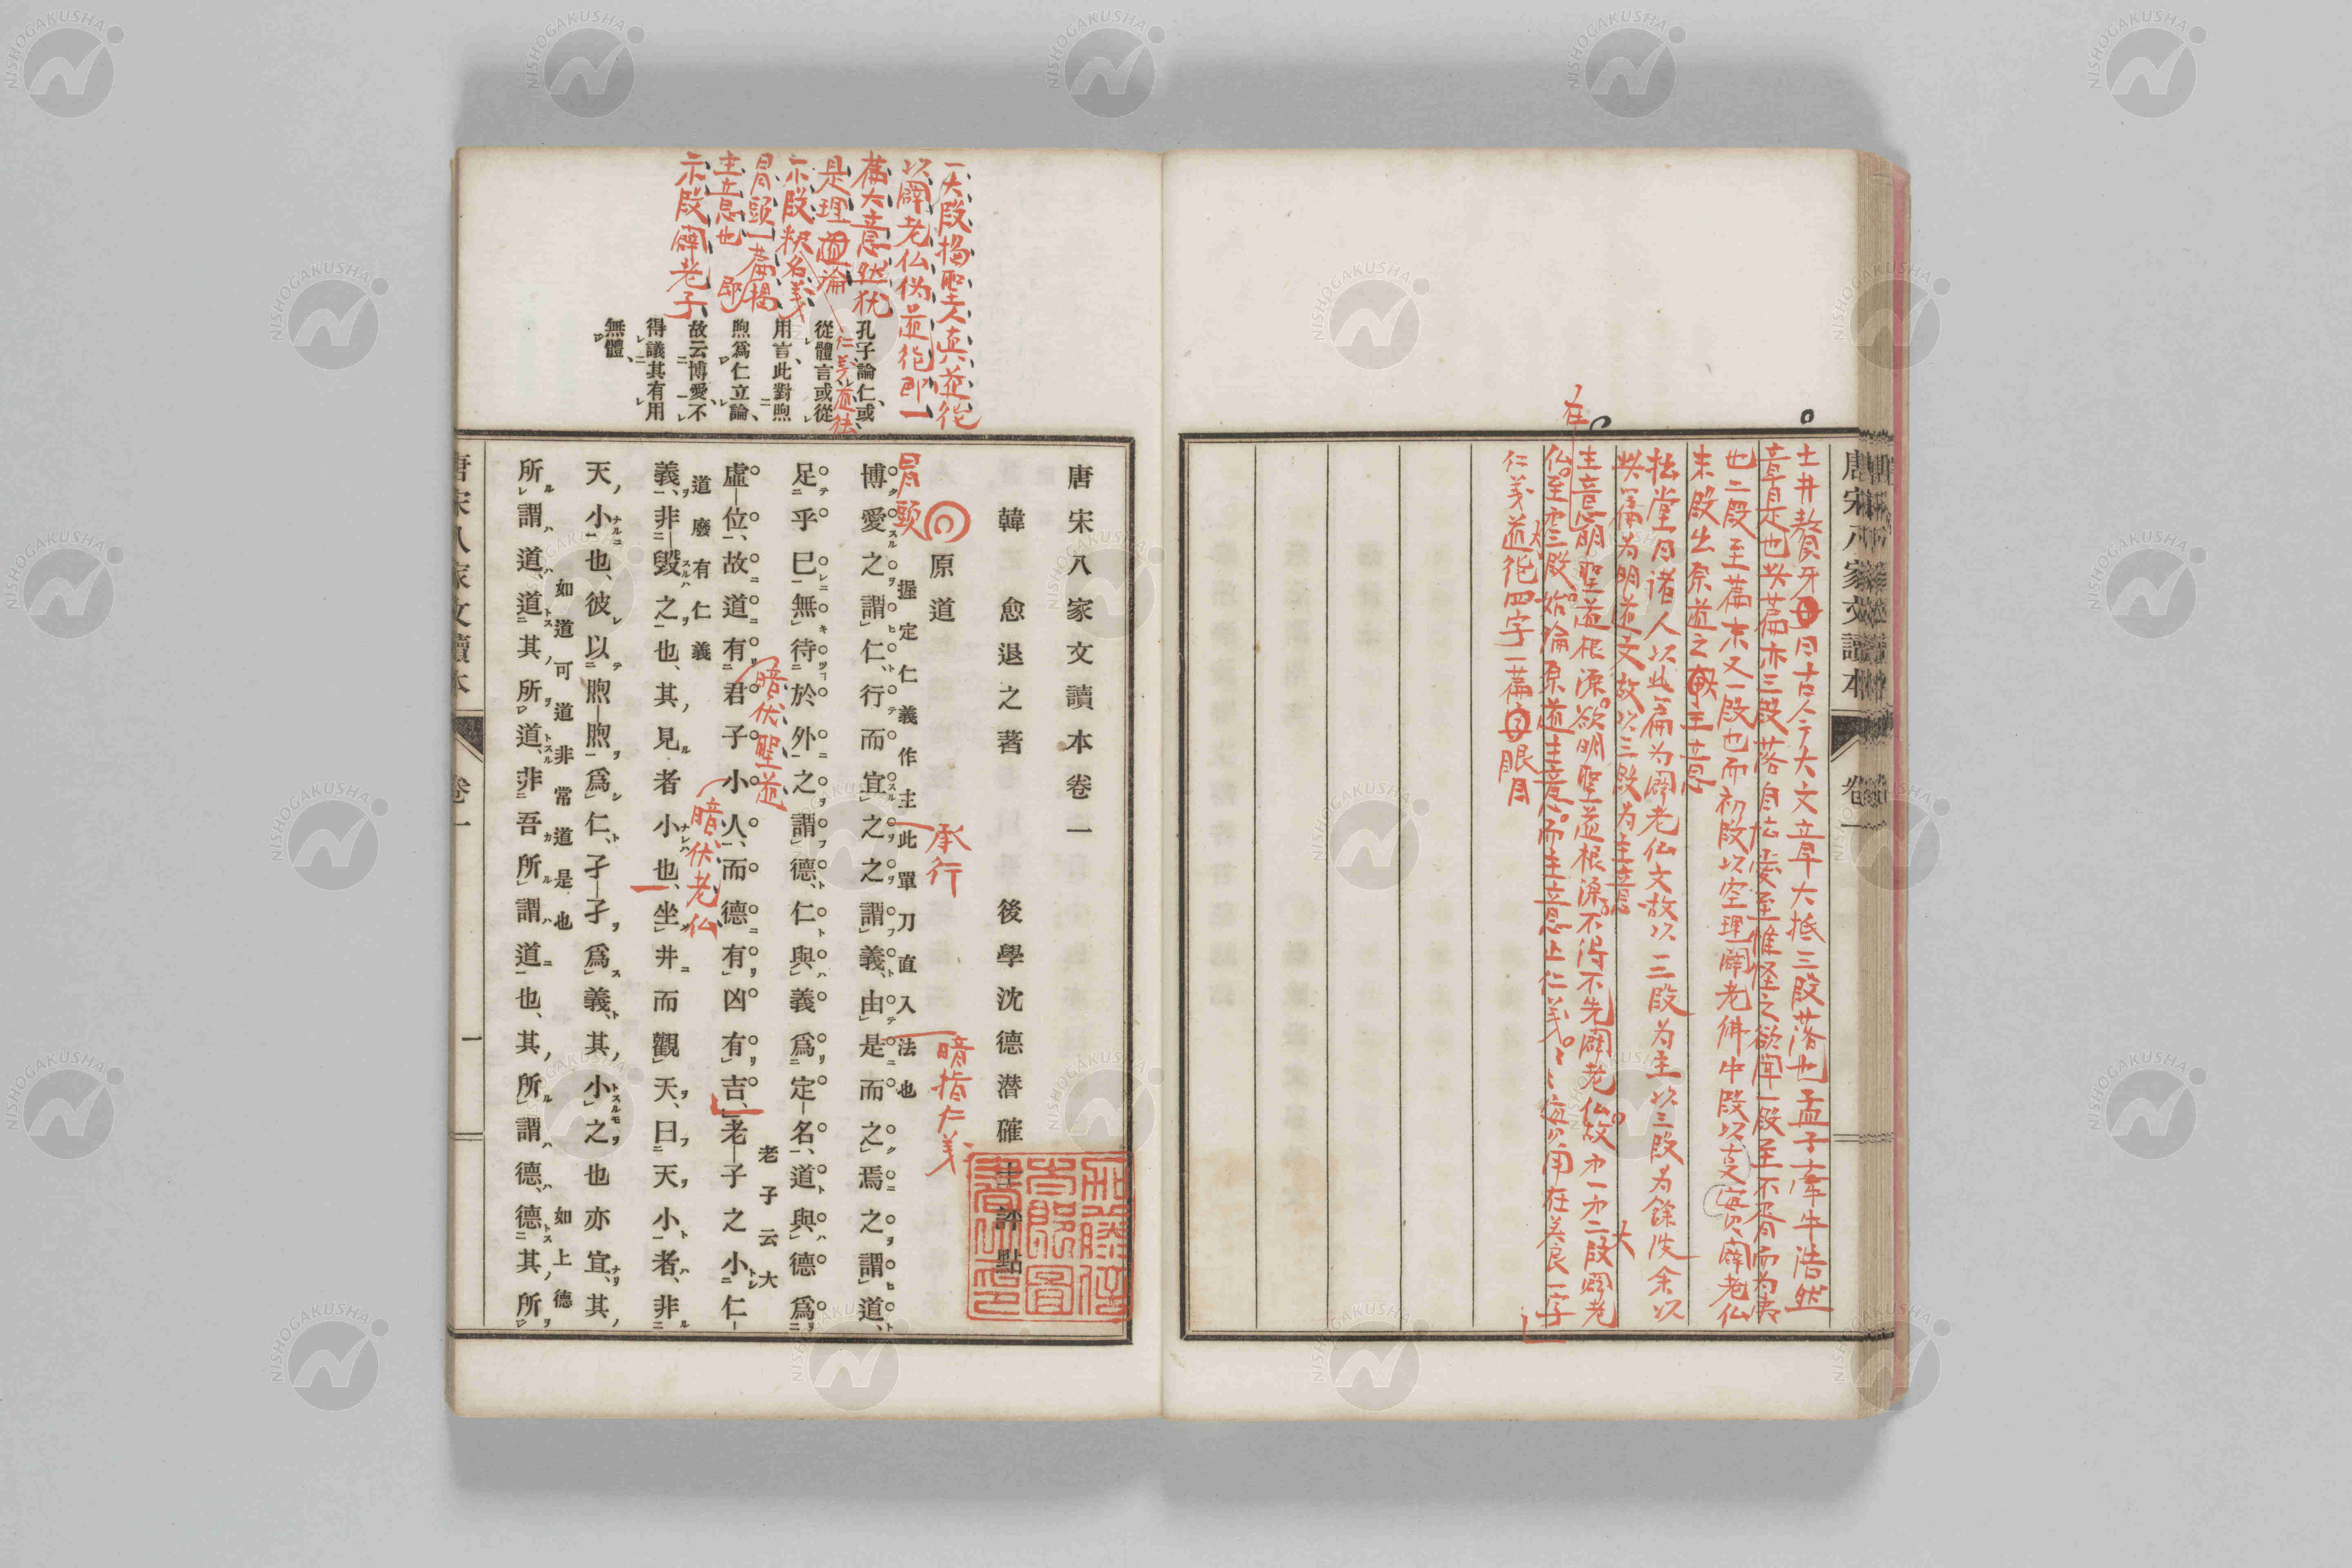 土井贅牙曰古今大文章大抵三段落也孟子牽牛浩然
章是也此篇亦三段落自古 至惟怪之欲聞一段至不胥而為夷
也二段至篇末又一段也而初段以空理闢老佛中段以 實闢老仏
末段出原道之主意
拙堂曰諸人以此篇为闢老仏文故以二段为主以三段为餘波余以
此篇为明道文故以三段为主意
主意明聖道根源欲明聖道根源不得不先闢老仏故才一才二段闢老
仏至才三段始論原道主意而主意止仁義
仁義道德四字一篇眼目
在
唐宋八家文讀本
卷一
一大段揭聖人真道德
以闢老仏偽道德即一
篇大意然狄
是理 論
一小段釈名義
冒頭一篇揭
主意也 即
示段闢老子
仁義道德
孔子論仁、或
從體言或從
用言、此對煦
煦爲仁立論、
故云博愛、不
得議其有用
無體、
唐宋八家文讀本卷一
韓愈退之著 後學沈德潛確士評點
原道
冒頭
承行
暗指仁義
握定仁義作主此單刀直入法也
博愛之謂仁、行而宜之之謂義、由是而之焉之謂道、
足乎己無待於外之謂德、仁與義爲定名、道與德爲
暗伏聖道
老子云大
虛位、故道有君子小人、而德有凶有吉、老子之小仁
道廢有仁義
暗伏老仏
義、非毀之也、其見者小也、坐井而觀天、曰天小者、非
天小也、彼以煦煦爲仁、孑孑爲義、其小之也亦宜、其
如道可道非常道是也
如上德
所謂道、道其所道、非吾所謂道也、其所謂德、德其所
唐宋八家文讀本
卷一
一
NISHOGAKUSHA